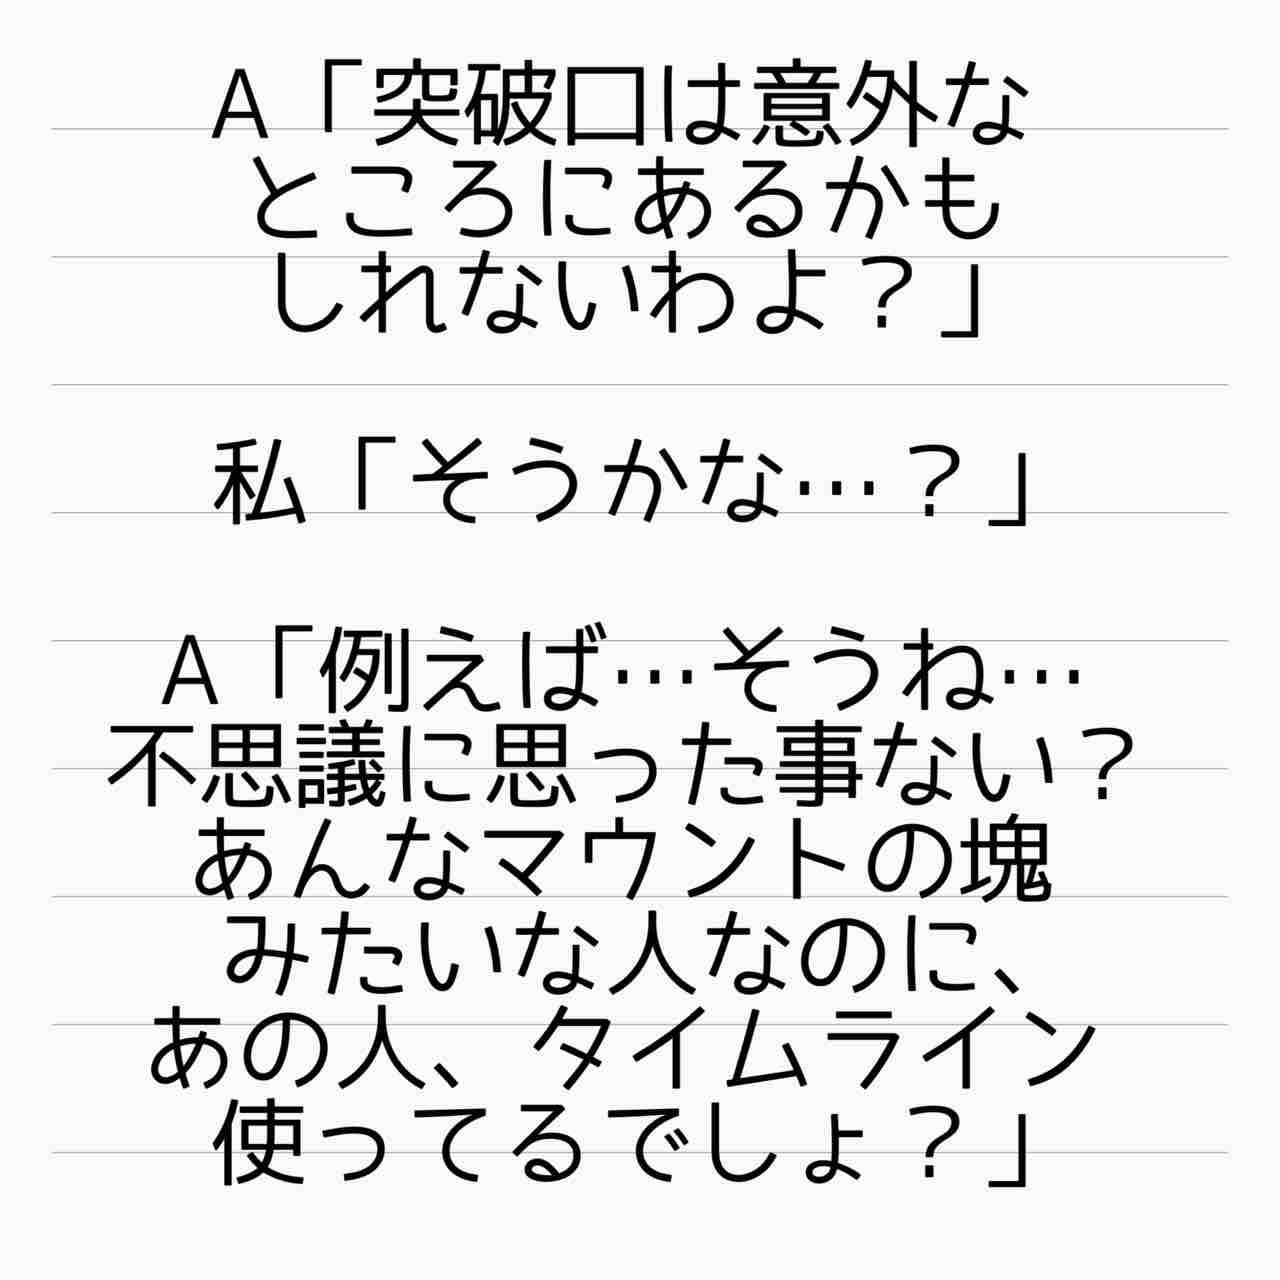 A「突破口は意外な
ところにあるかも
しれないわよ？」
私「そうかな…？」
A「例えば…そうね…
不思議に思った事ない？
あんなマウントの塊
みたいな人なのに、
あの人、タイムライン
使ってるでしょ？」